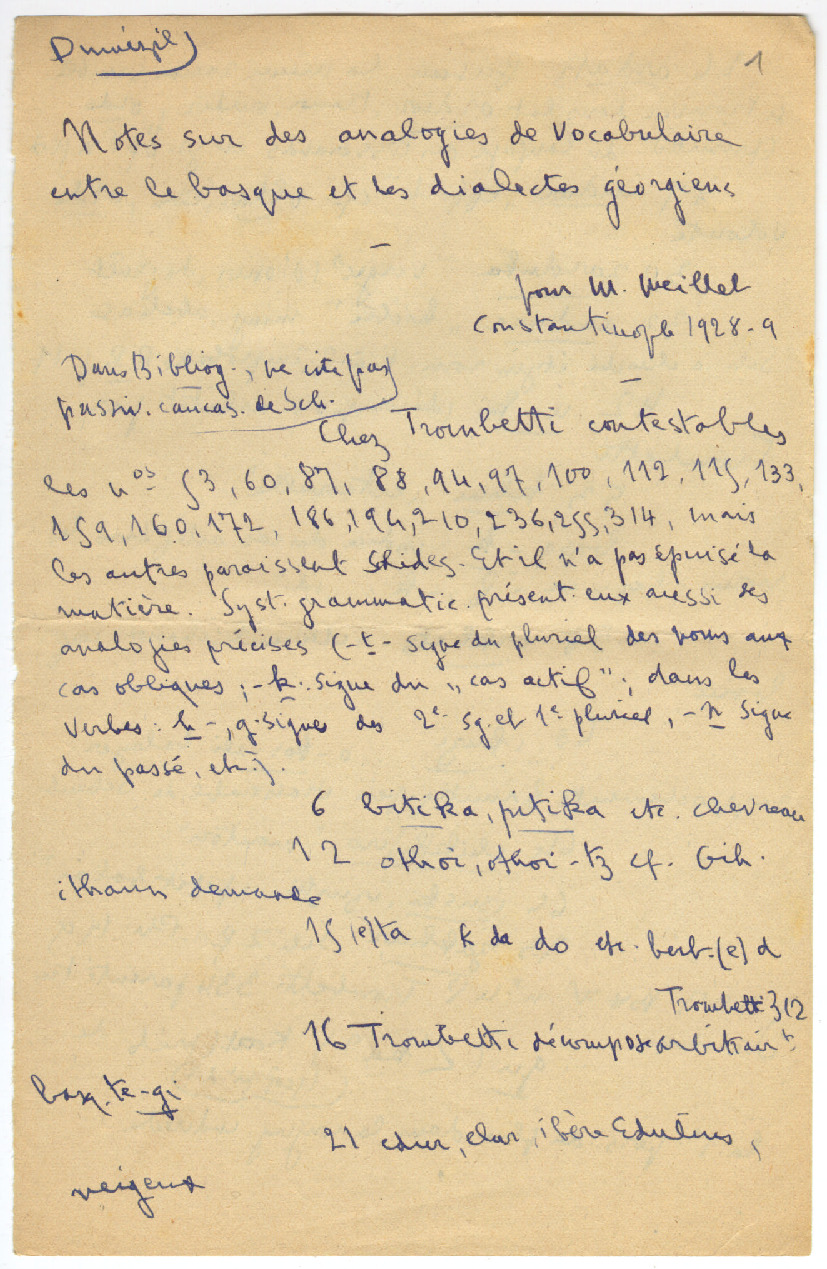 Dumézil
1
Notes sur des analogies de vocabulaire
entre le basque et les dialectes géorgiens
—
pour M. Meillet
Constantinople 1928-9
Dans Bibliog., ne cite pas
passiv. caucas. de Sch.
—
Chez Trombetti contestables
les nos 53, 60, 87, 88, 94, 97, 100, 112, 115, 133,
159, 160, 172, 186, 194, 210, 236, 255, 314, mais
les autres paraissent solides. Et il n'a pas épuisé la
matière. Syst. grammatic. présent. eux aussi des
analogies précises (-t- signe du pluriel des noms aux
cas obliques ; -k. signe du „cas actif" ; dans les
verbes : h-, g- signes des 2e sg. et 1e pluriel, -n signe
du passé, etc.).
6 bitika, pitika etc. chevreau
12 othoi, othoi-tz cf. Bih.
ithaun demande
15 (e)ta k da do etc. berb. (e)d
Trombetti 312
16 Trombetti décompose arbitrairt
basq. te-gi
21 edur, elur, ibère Edulius,
neigeux